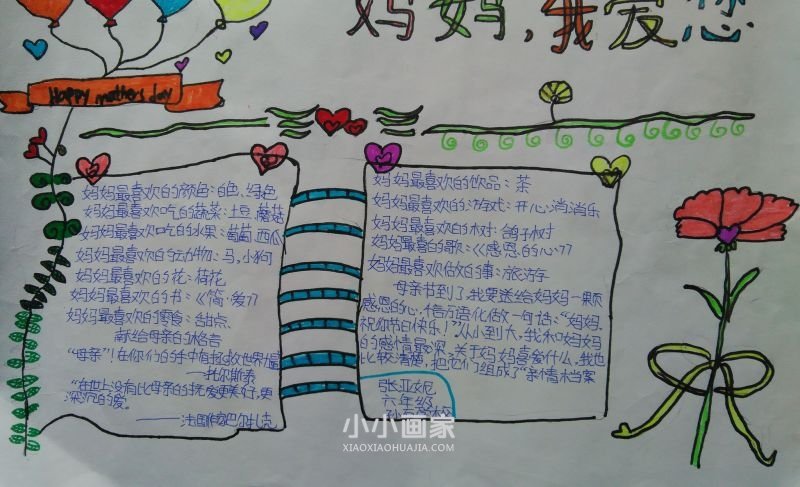 妈妈,我爱您
Happy mothers day
妈妈最喜欢的颜色:白色、绿色
妈妈最喜欢吃的蔬菜:土豆、蘑菇
妈妈最喜欢吃的水果:葡萄、西瓜
妈妈最喜欢的动物:马,小狗
妈妈最喜欢的花:荷花
妈妈最喜欢的书:《简·爱》
妈妈最喜欢的零食:甜点、
献给母亲的格言
"母亲"!在你们的手中有拯救世界力量
——托尔斯泰
"在世上没有比母亲的挚爱更美好,更
深沉的爱。
——法国作家巴尔扎克
妈妈最喜欢的饮品:茶
妈妈最喜欢的游戏:开心消消乐
妈妈最喜欢的树:鸽子树
妈妈最喜的歌:《感恩的心》
妈妈最喜欢做的事:旅游
母亲节到了,我要送给妈妈一颗
感恩的心,千言万语化做一句话:"妈妈,
祝你节日快乐!"从小到大,我和妈妈
的感情最深,关于妈妈喜爱什么,我也
比较清楚,把它们组成了"亲情档案
张亚妮
六年级
小小画家
XIAOXIAOHUAJIA.COM